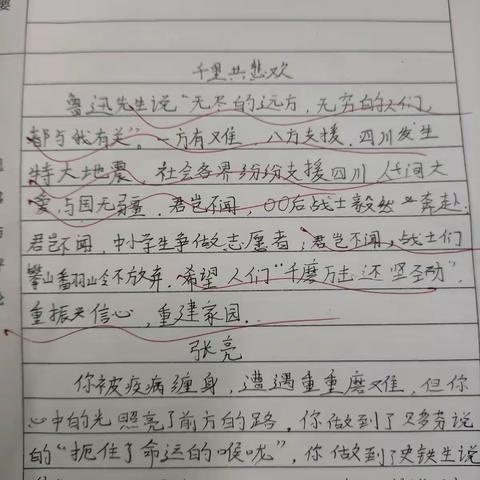 千里共悲欢
鲁迅先生说“无尽的远方，无穷的人们，
都与我有关”。一方有难，八方支援。四川发生
特大地震，社会各界纷纷支援四川，人间大
爱，与国无疆。君岂不闻，00后战士毅然奔赴；
君岂不闻，中小学生争做志愿者；君岂不闻，战士们
攀山翻岭不放弃。希望人们“千磨万击还坚劲”，
重振信心，重建家园。
张亮
你被疫病缠身，遭遇重重磨难，但你
心中的光照亮了前方的路。你做到了贝多芬说
的“扼住了命运的喉咙”，你做到了史铁生说